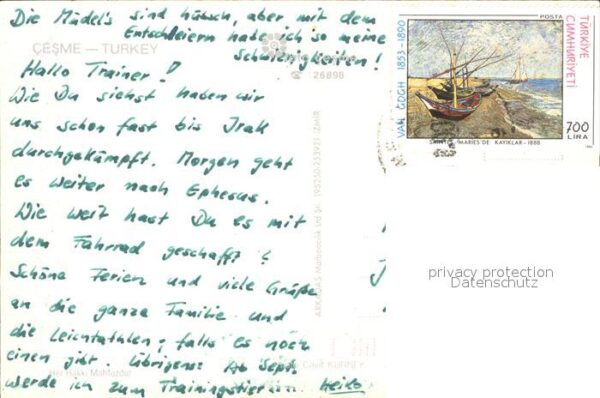 Die Mädel's sind hübsch, aber mit dem
Entschleiern habe ich so meine
Schwierigkeiten!
ÇEŞME — TURKEY
26898
Hallo Trainer!
Wie Du siehst haben wir
uns schon fast bis Irak
durchgekämpft. Morgen geht
es weiter nach Ephesus.
Wie weit hast Du es mit
dem Fahrrad geschafft?
Schöne Ferien und viele Grüße
an die ganze Familie und
die Leichtathleten, falls es noch
einen gibt. Übrigens: Ab Sept.
werde ich zum Trainingstier!!! Heiko
Her Hakkı Mahfuzdur
VAN GOGH 1853-1890
POSTA
TÜRKİYE
CUMHURİYETİ
700
LİRA
MARIES'DE KAYIKLAR-1888
privacy protection
Datenschutz